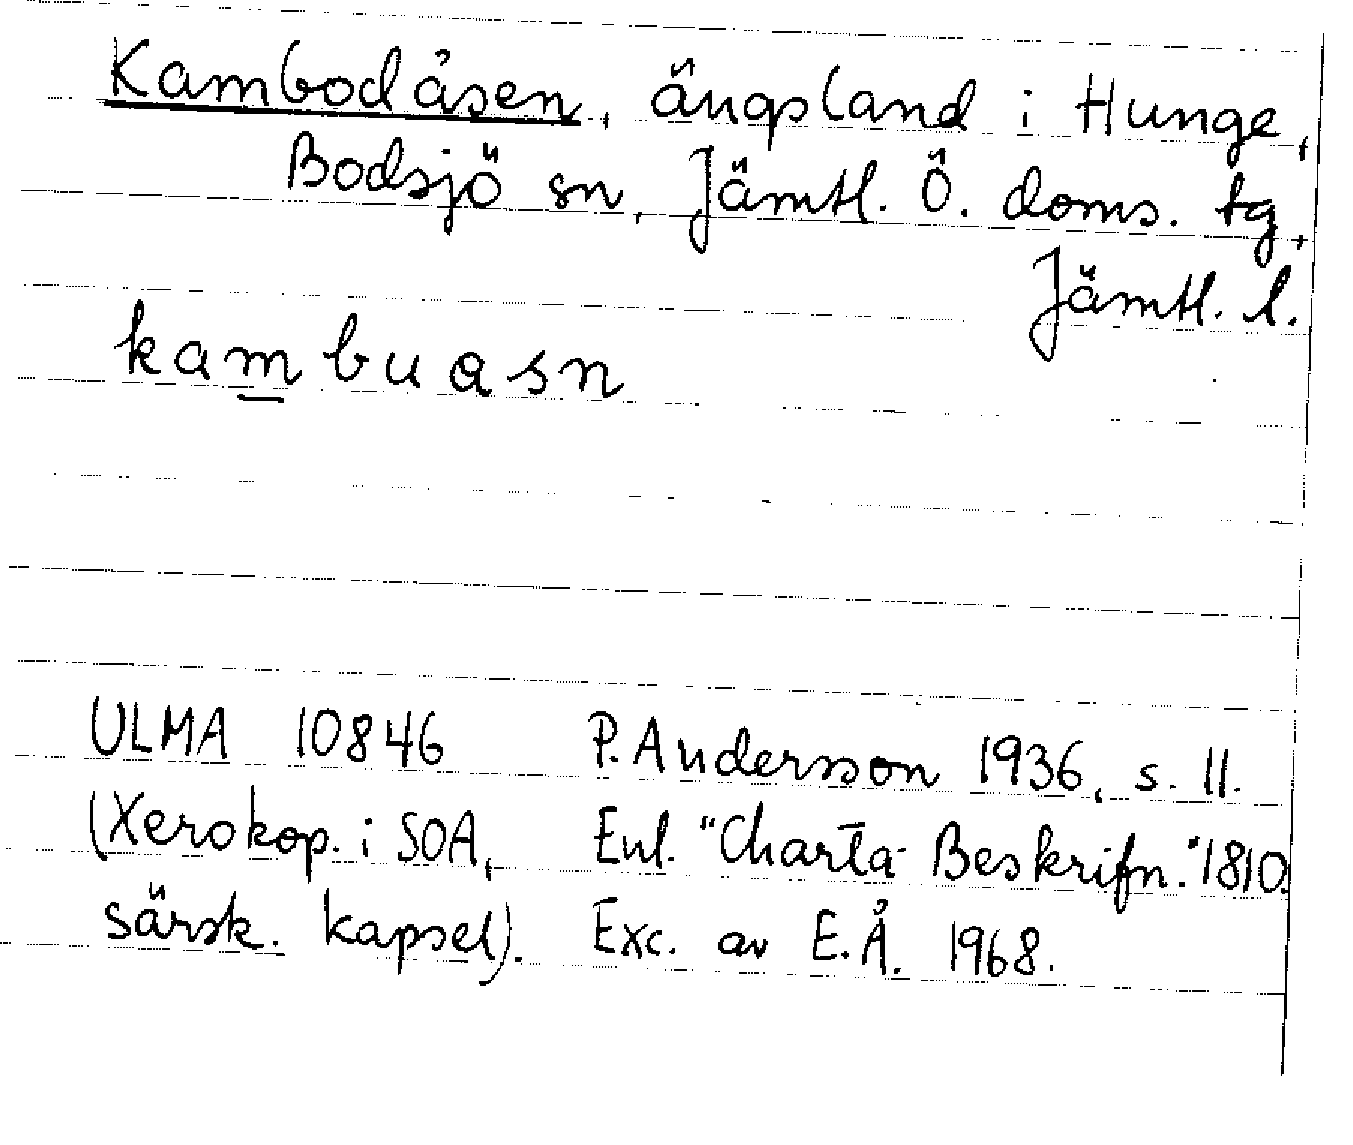 Kambodåsen, ängsland i Hunge,
Bodsjö sn, Jämtl. Ö. doms. tg,
Jämtl. l.
kambuasn
ULMA 10846 P. Andersson 1936, s. 11.
(Xerokop. i SOA, Enl. "Charta Beskrifn." 1810.
särsk. kapsel). Exc. av E.Å. 1968.